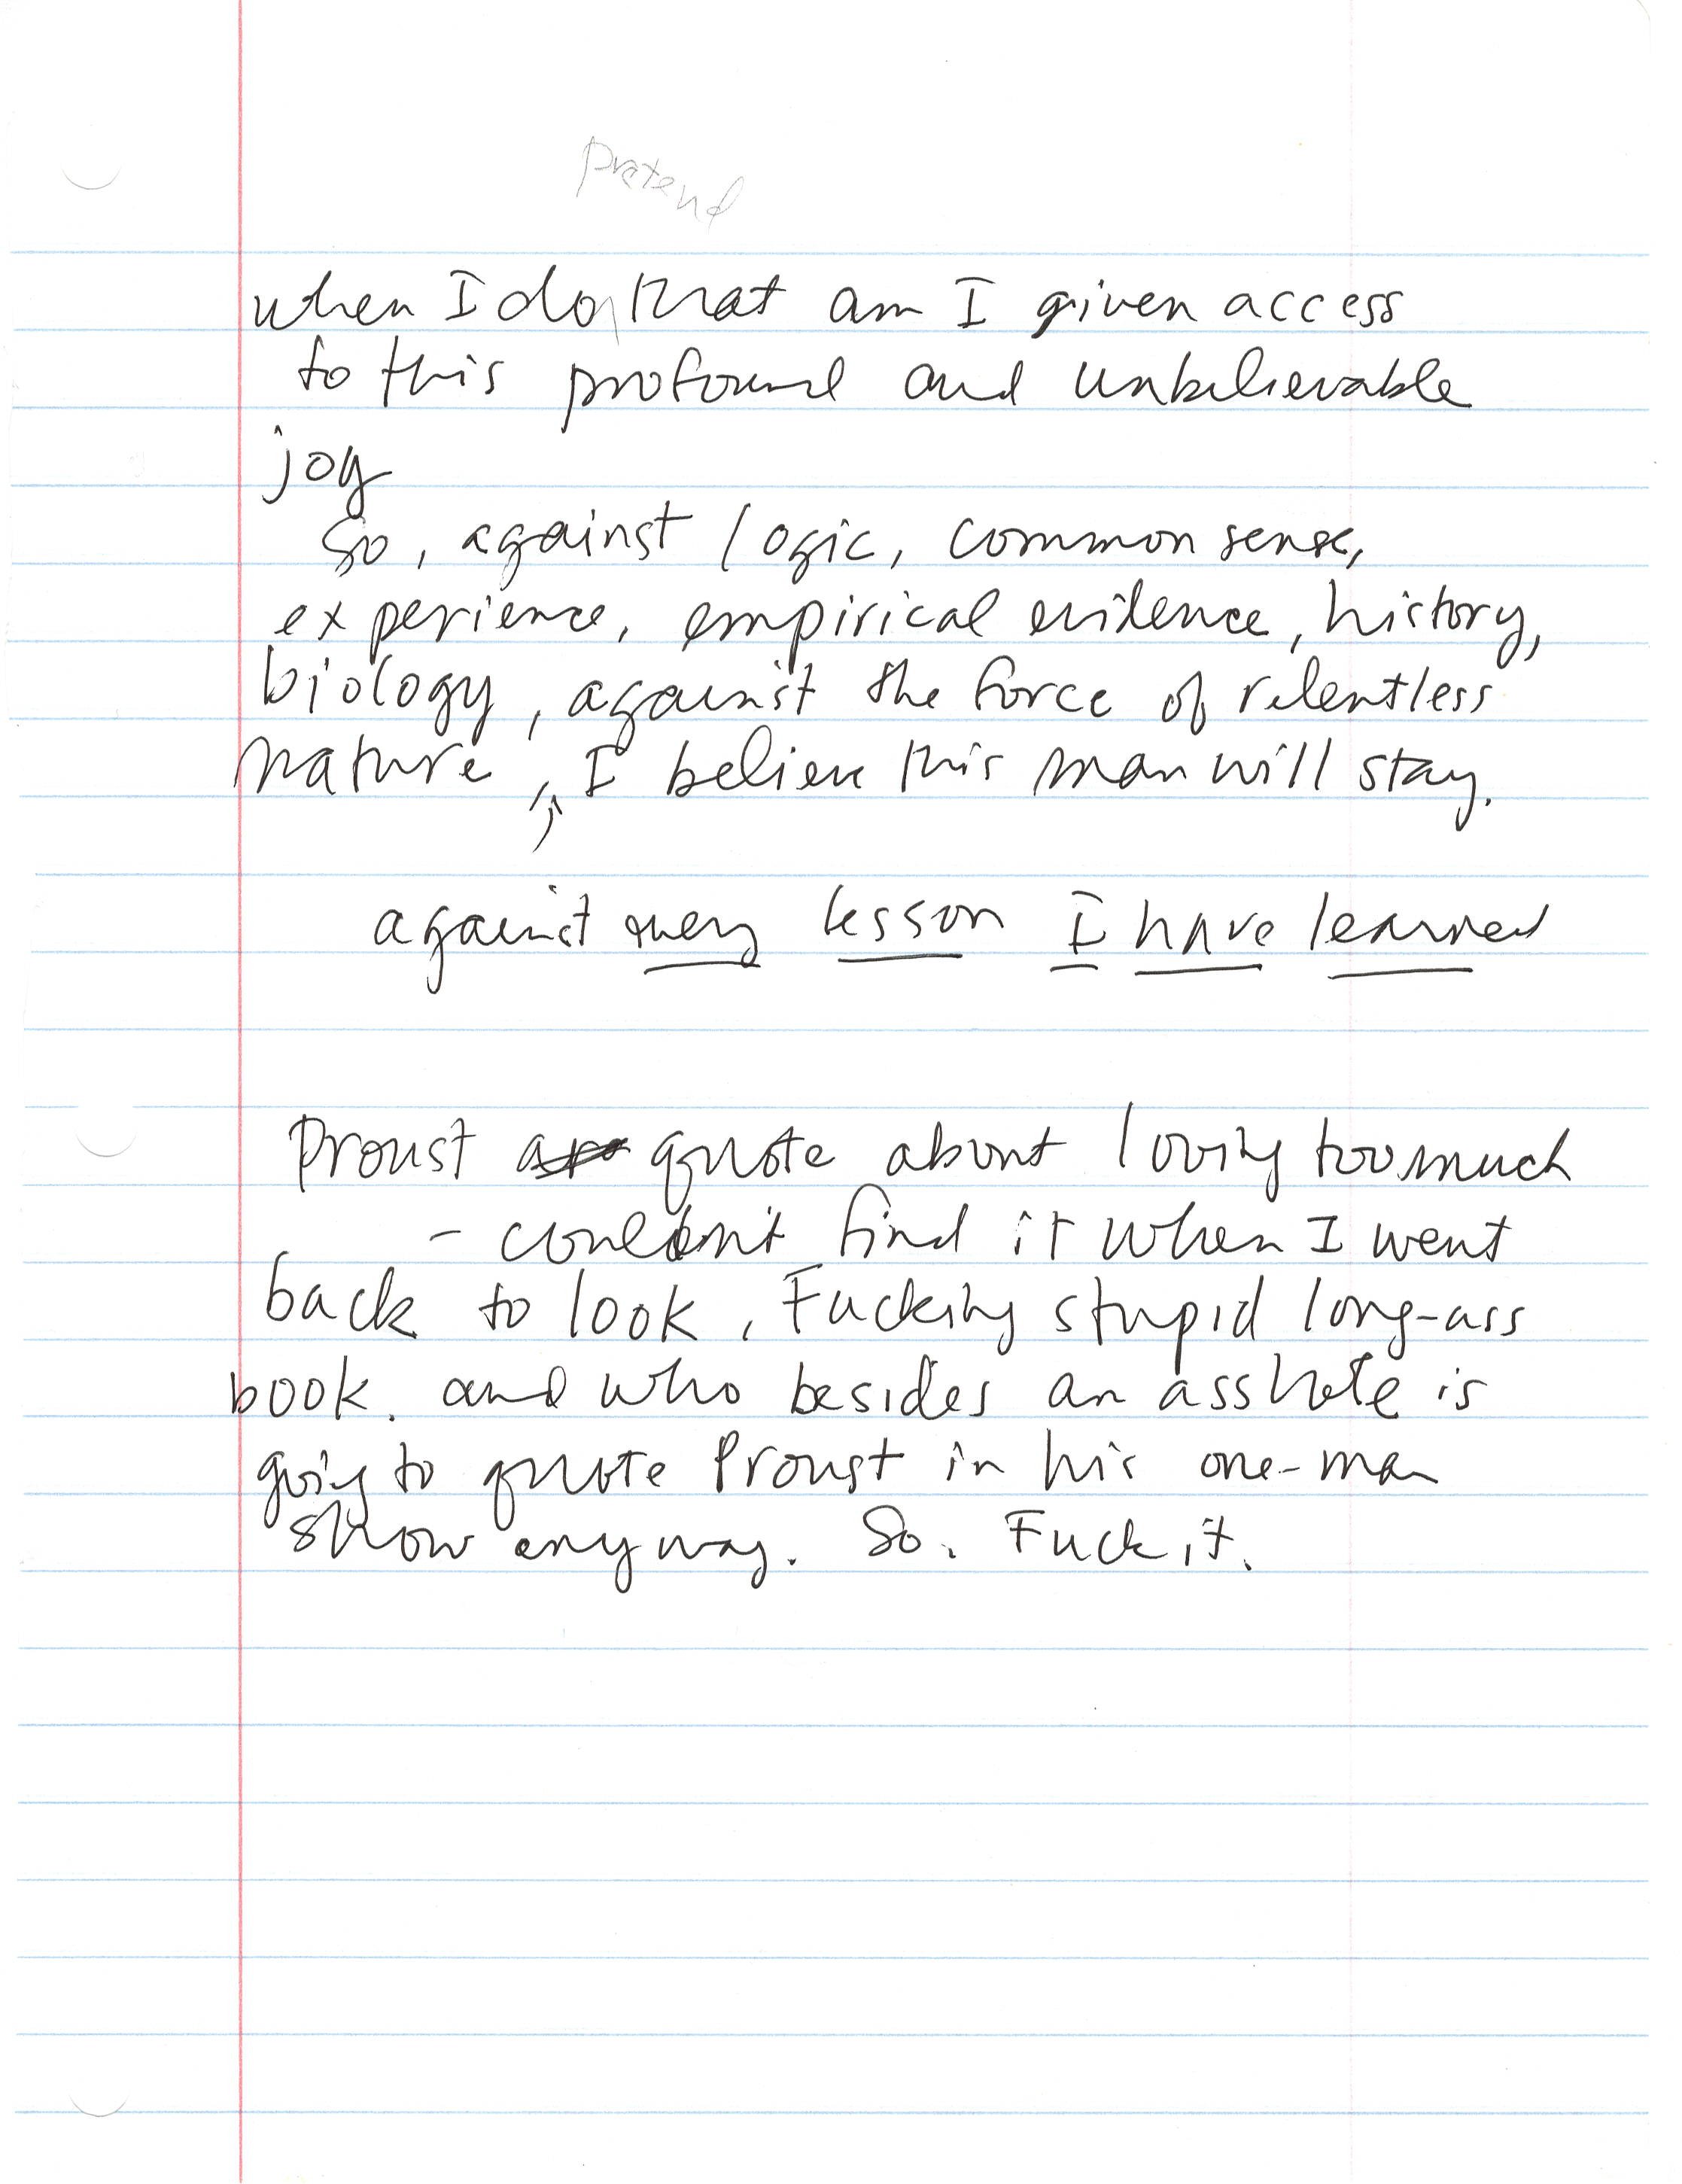 pretend
when I do that am I given access
to this profound and unbelievable
joy
So, against logic, common sense,
experience, empirical evidence, history,
biology, against the force of relentless
nature, I believe this man will stay.
against every lesson I have learned
Proust quote about loving too much
- couldn't find it when I went
back to look. Fucking stupid long-ass
book. and who besides an asshole is
going to quote Proust in his one-man
show anyway. So. Fuck it.